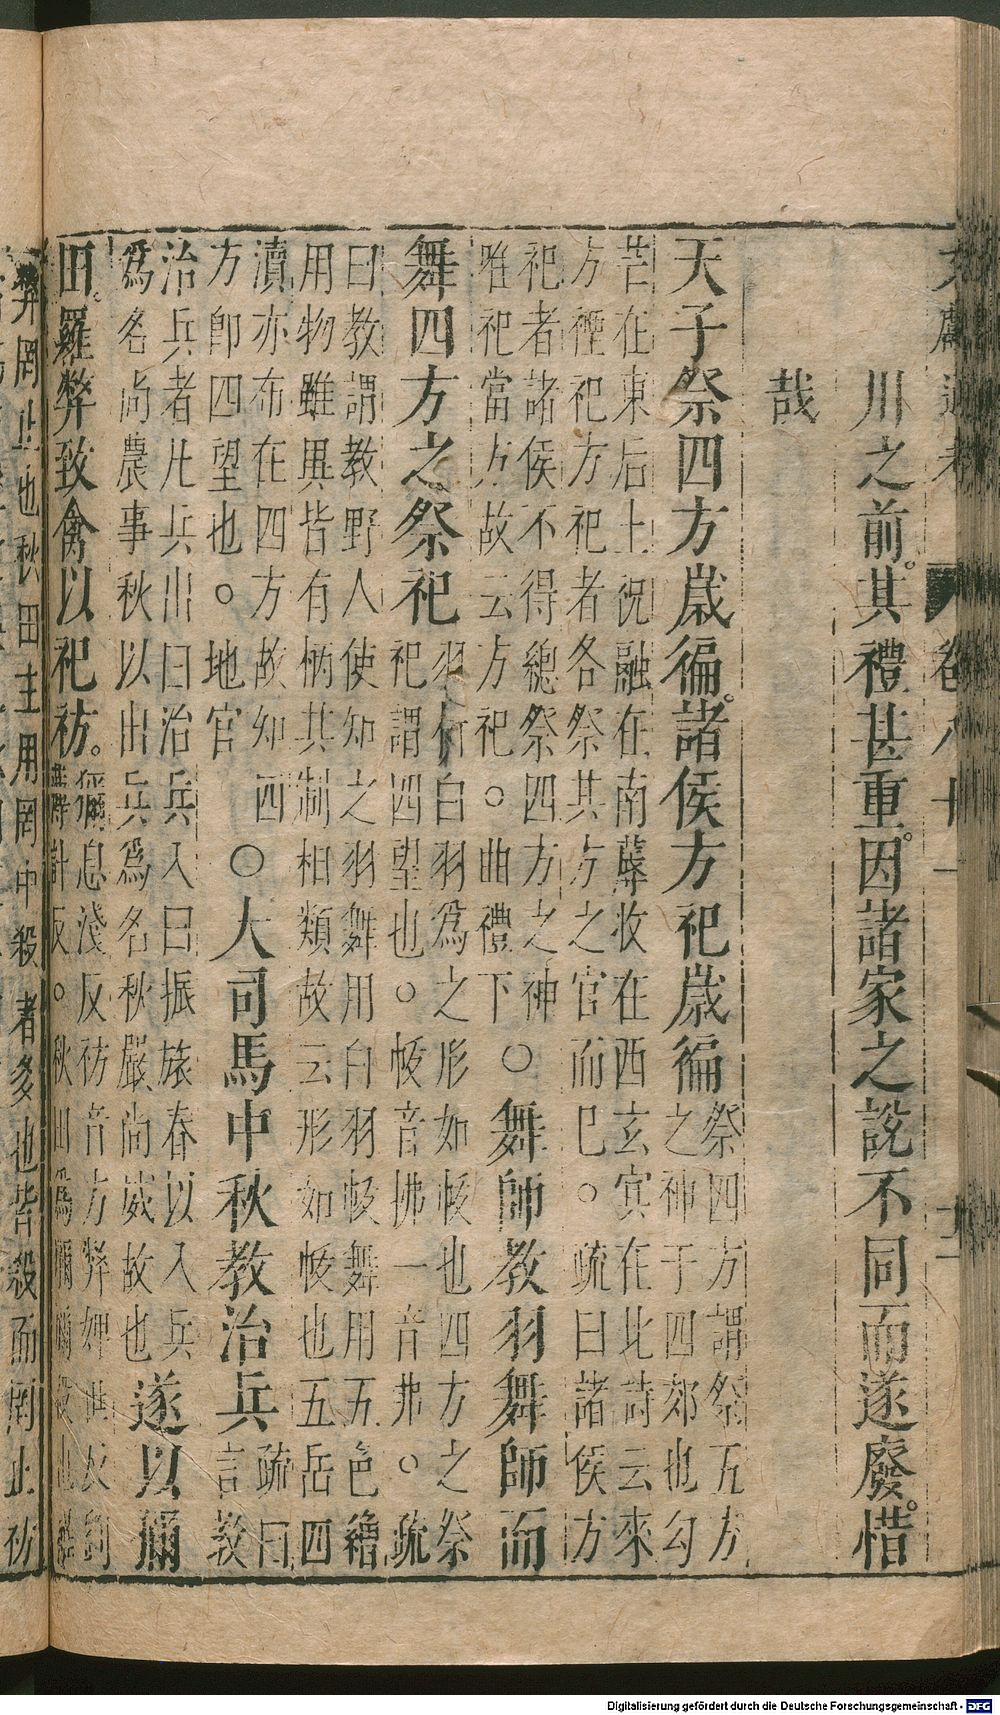 文獻通考 卷八十一 十二
川之前其禮甚重因諸家之說不同而遂廢惜
哉
天子祭四方歲徧諸侯方祀歲徧
祭四方謂祭五方
之神于四郊也勾
芒在東后土祝融在南蓐收在西玄冥在北詩云來
方禋祀方祀者各祭其方之官而巳。疏曰諸侯方
祀者諸侯不得總祭四方之神
唯祀當方故云方祀。曲禮下
〇舞師教羽舞師而
舞四方之祭祀
羽析白羽爲之形如帗也四方之祭
祀謂四望也。帗音拂一音弗。疏
曰教謂教野人使知之羽舞用白羽帗舞用五色繒
用物雖異皆有柄其制相類故云形如帗也五岳四
瀆亦布在四方故知四
方卽四望也。地官
〇大司馬中秋教治兵
疏曰
言教
治兵者凡兵出曰治兵入曰振旅春以入兵
爲名尚農事秋以出兵爲名秋嚴尚威故也
遂以獮
田羅弊致禽以祀祊
獮息淺反祊音方弊婢世反劉
計反。秋田爲獮獮殺也羅
弊罔止也秋田主用罔中殺者多也皆殺而罔止祊
Digitalisierung gefördert durch die Deutsche Forschungsgemeinschaft - DFG